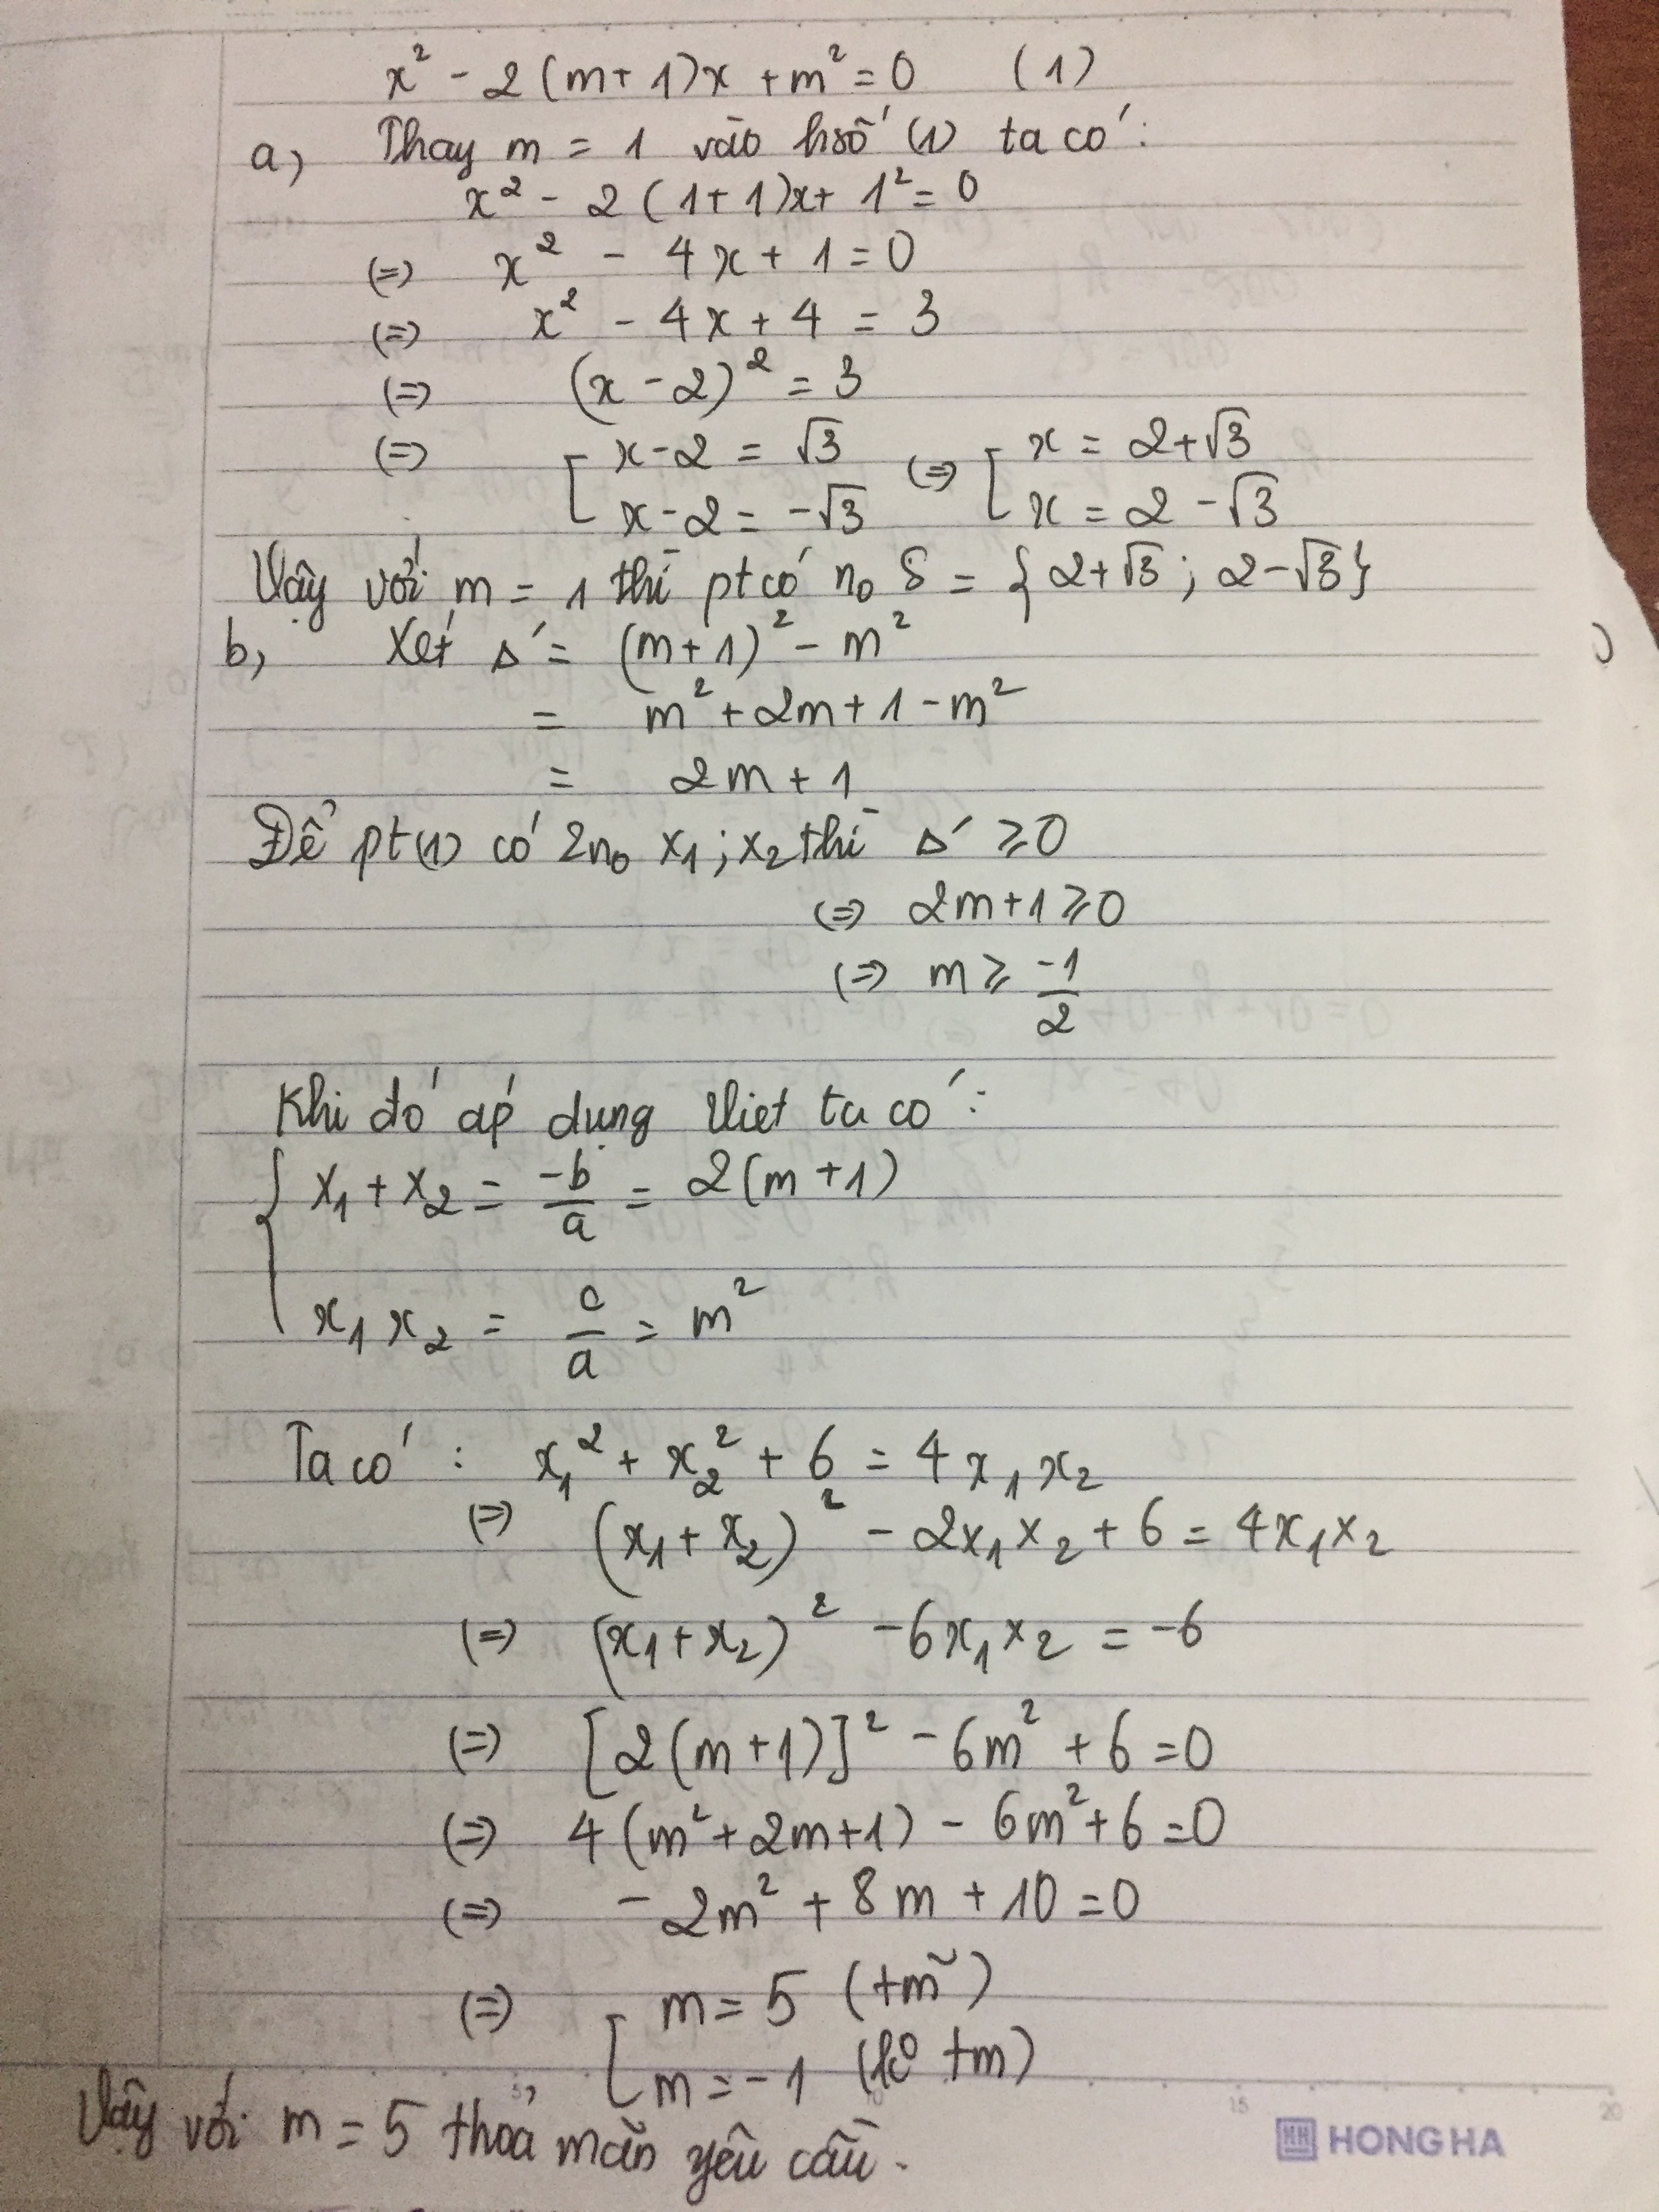 x² - 2(m+1)x + m² = 0 (1)
a, Thay m = 1 vào hsố (1) ta có:
x² - 2(1+1)x + 1² = 0
(=) x² - 4x + 1 = 0
(=) x² - 4x + 4 = 3
(=) (x-2)² = 3
(=) [ x-2 = √3 (=) [ x = 2+√3
x-2 = -√3 x = 2-√3
Vậy với m = 1 thì pt có no S = {2+√3; 2-√3}
b, Xét Δ' = (m+1)² - m²
= m² + 2m + 1 - m²
= 2m + 1
Để pt(1) có 2no x₁; x₂ thì Δ' ⩾ 0
(=) 2m+1 ⩾ 0
(=) m ⩾ -1/2
Khi đó áp dụng Viet ta có:
{ x₁ + x₂ = -b/a = 2(m+1)
x₁x₂ = c/a = m²
Ta có: x₁² + x₂² + 6 = 4x₁x₂
(=) (x₁+x₂)² - 2x₁x₂ + 6 = 4x₁x₂
(=) (x₁+x₂)² - 6x₁x₂ = -6
(=) [2(m+1)]² - 6m² + 6 = 0
(=) 4(m²+2m+1) - 6m² + 6 = 0
(=) -2m² + 8m + 10 = 0
(=) [ m = 5 (tm)
m = -1 (ko tm)
Vậy với m = 5 thoả mãn yêu cầu.
15 20
HONG HA